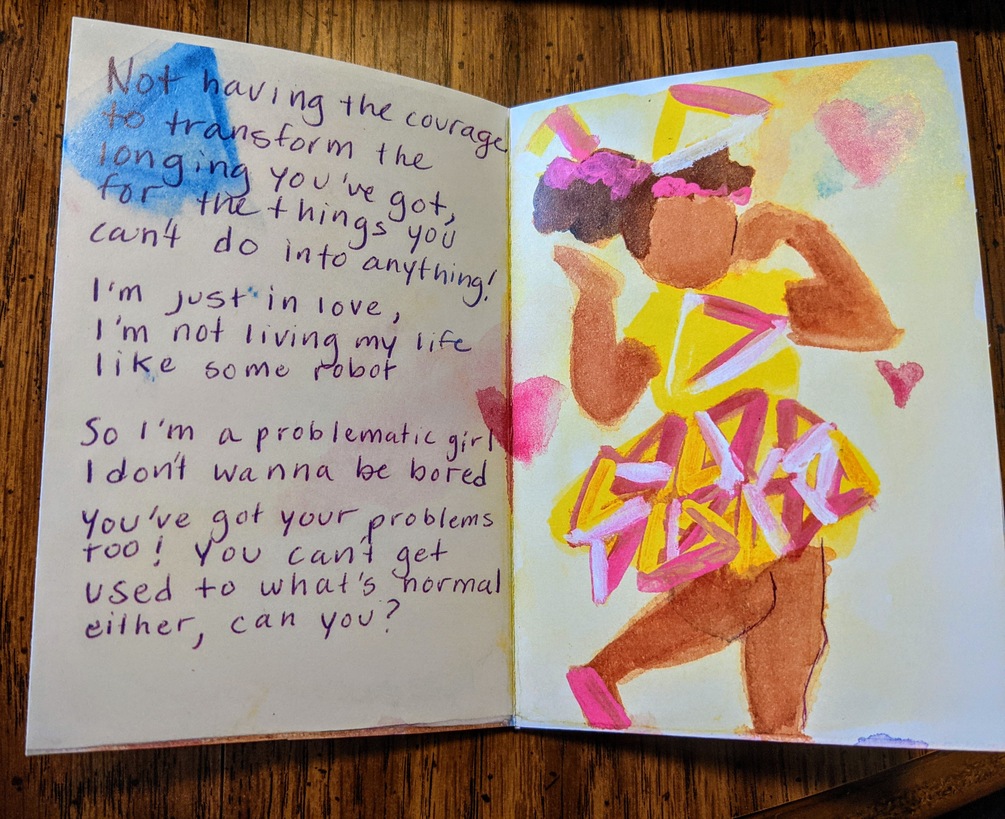 Not having the courage
to transform the
longing you've got,
for the things you
can't do into anything!
I'm just in love,
I'm not living my life
like some robot
So I'm a problematic girl
I don't wanna be bored
You've got your problems
too! You can't get
used to what's normal
either, can you?